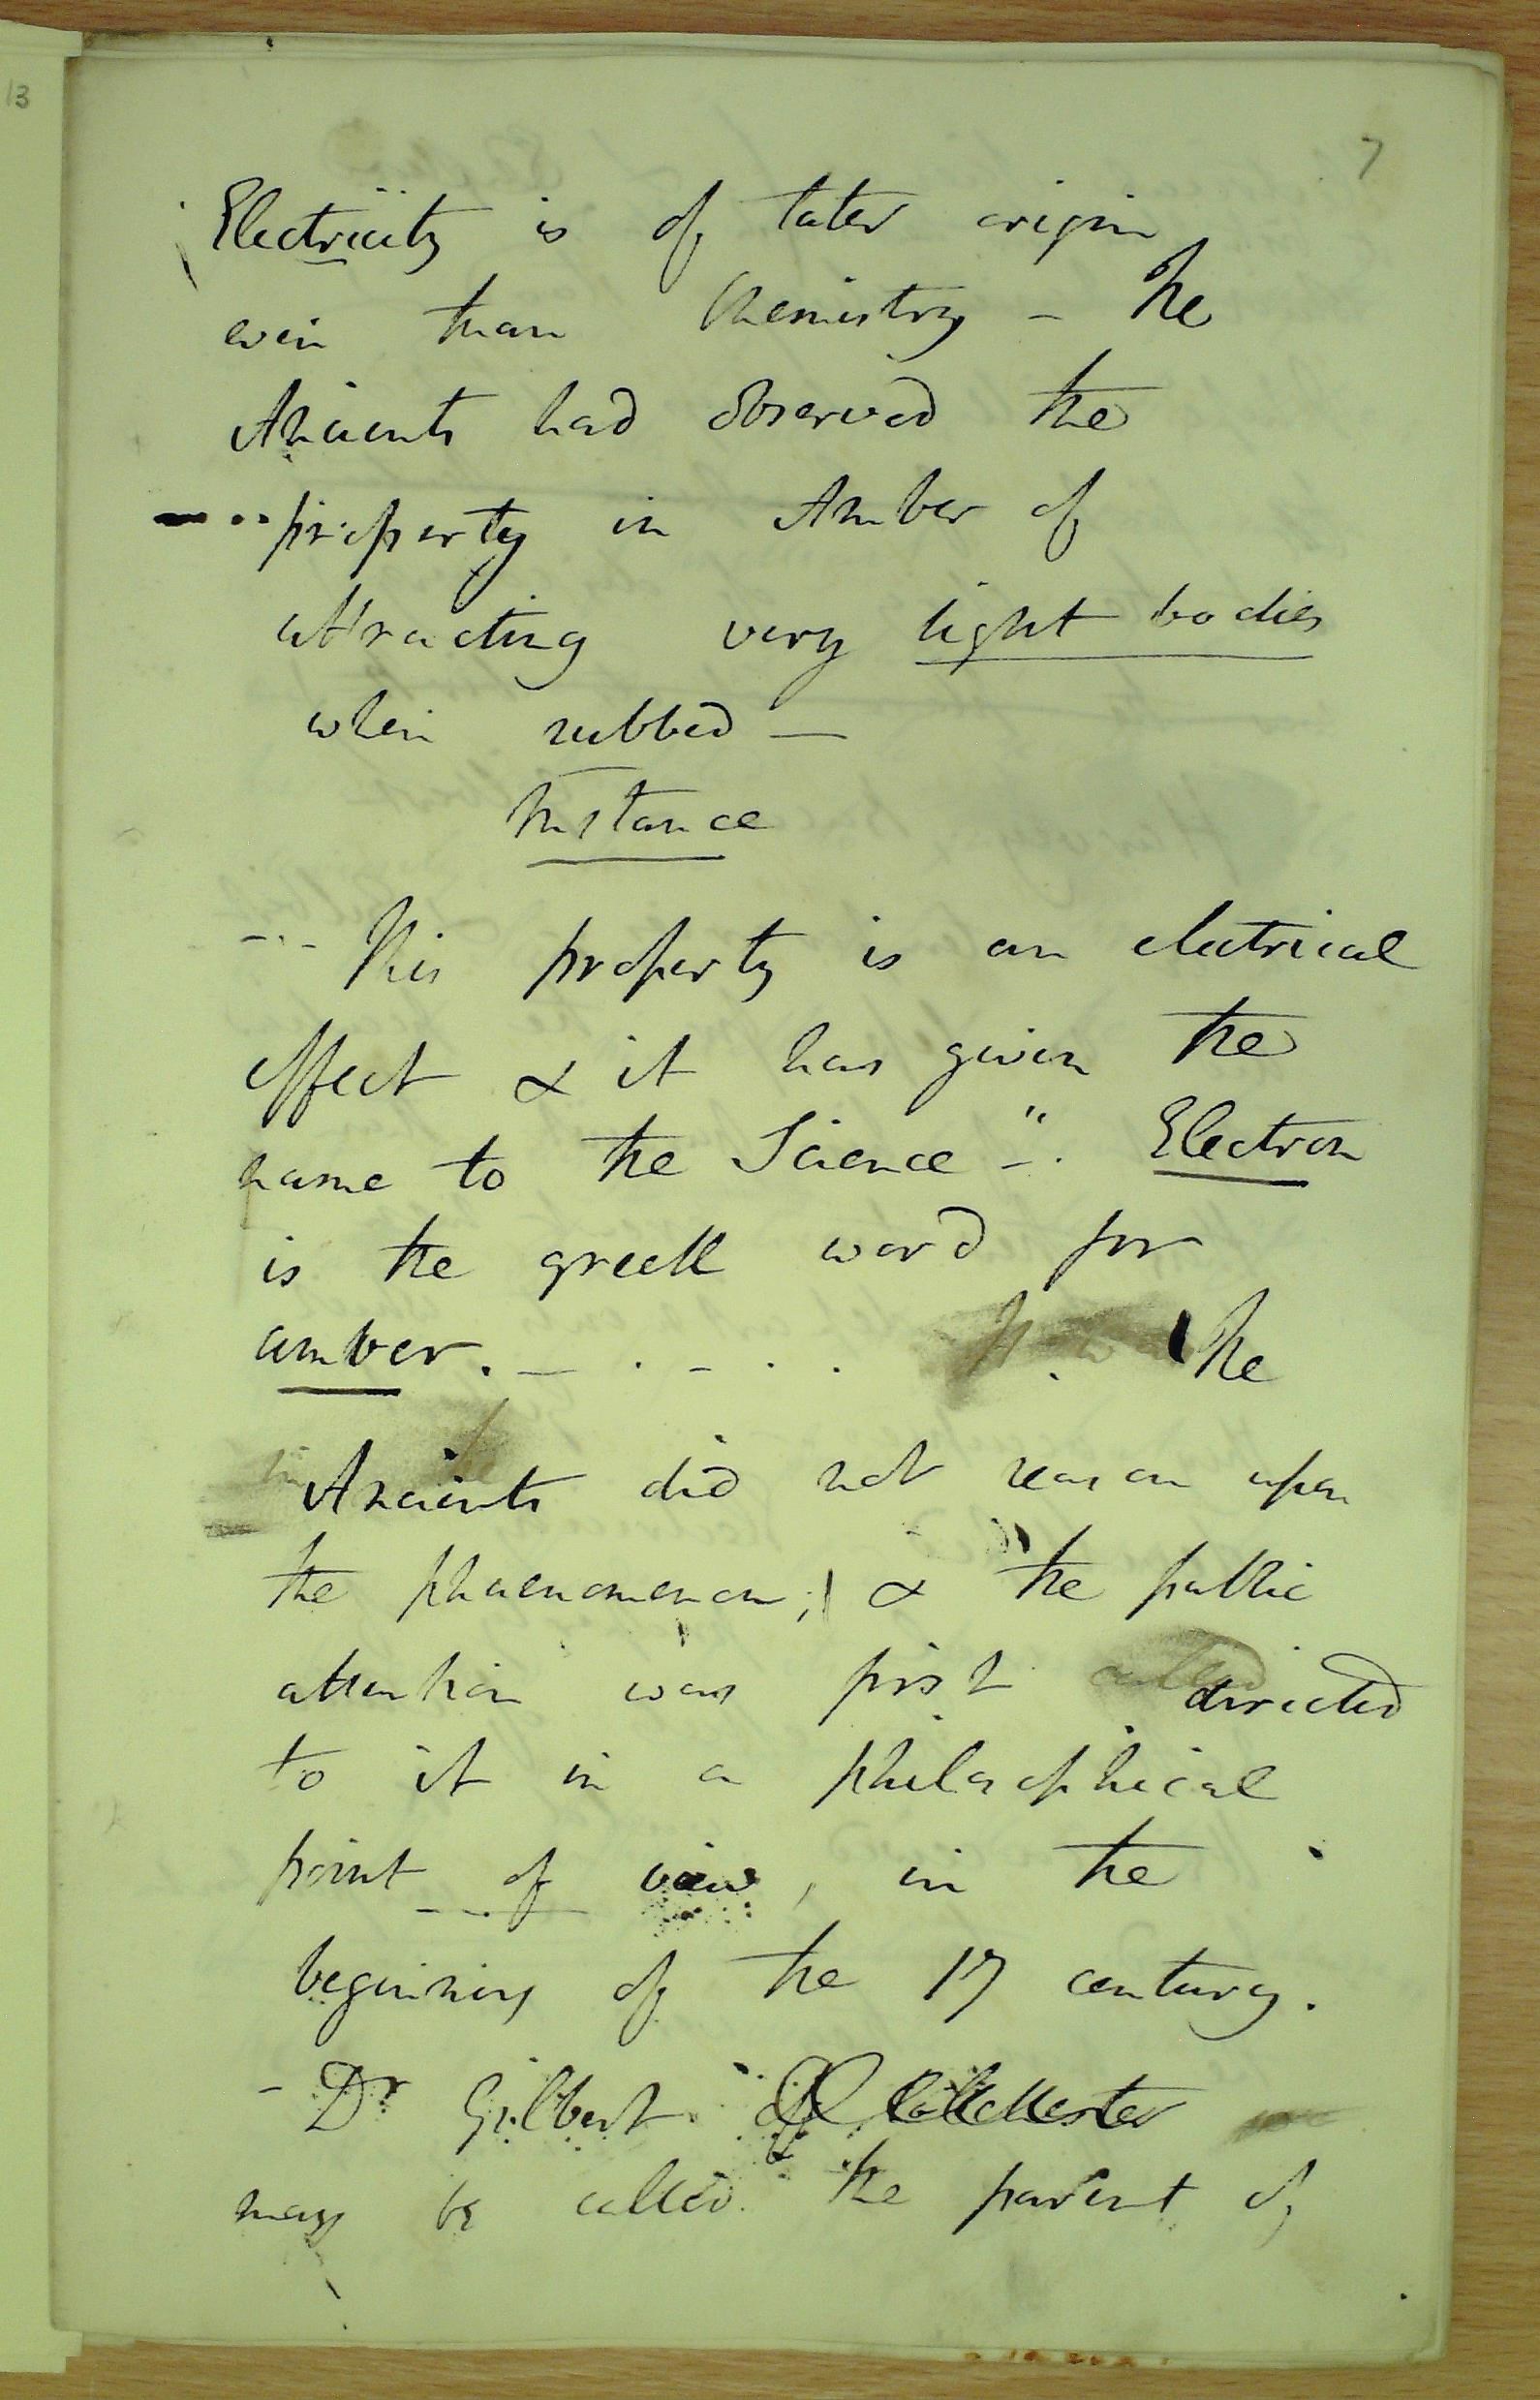 13
7
Electricity is of later origin
even than Chemistry - The
Ancients had observed the
property in Amber of
attracting very light bodies
when rubbed —
Instance
This property is an electrical
effect & it has given the
name to the Science -. Electron
is the greek word for
amber. - . - . . The
Ancients did not reason upon
the phaenomenon; & the public
attention was first directed
to it in a philosophical
point of view, in the
beginning of the 17 century.
- Dr Gilbert of Colchester
may be called the parent of